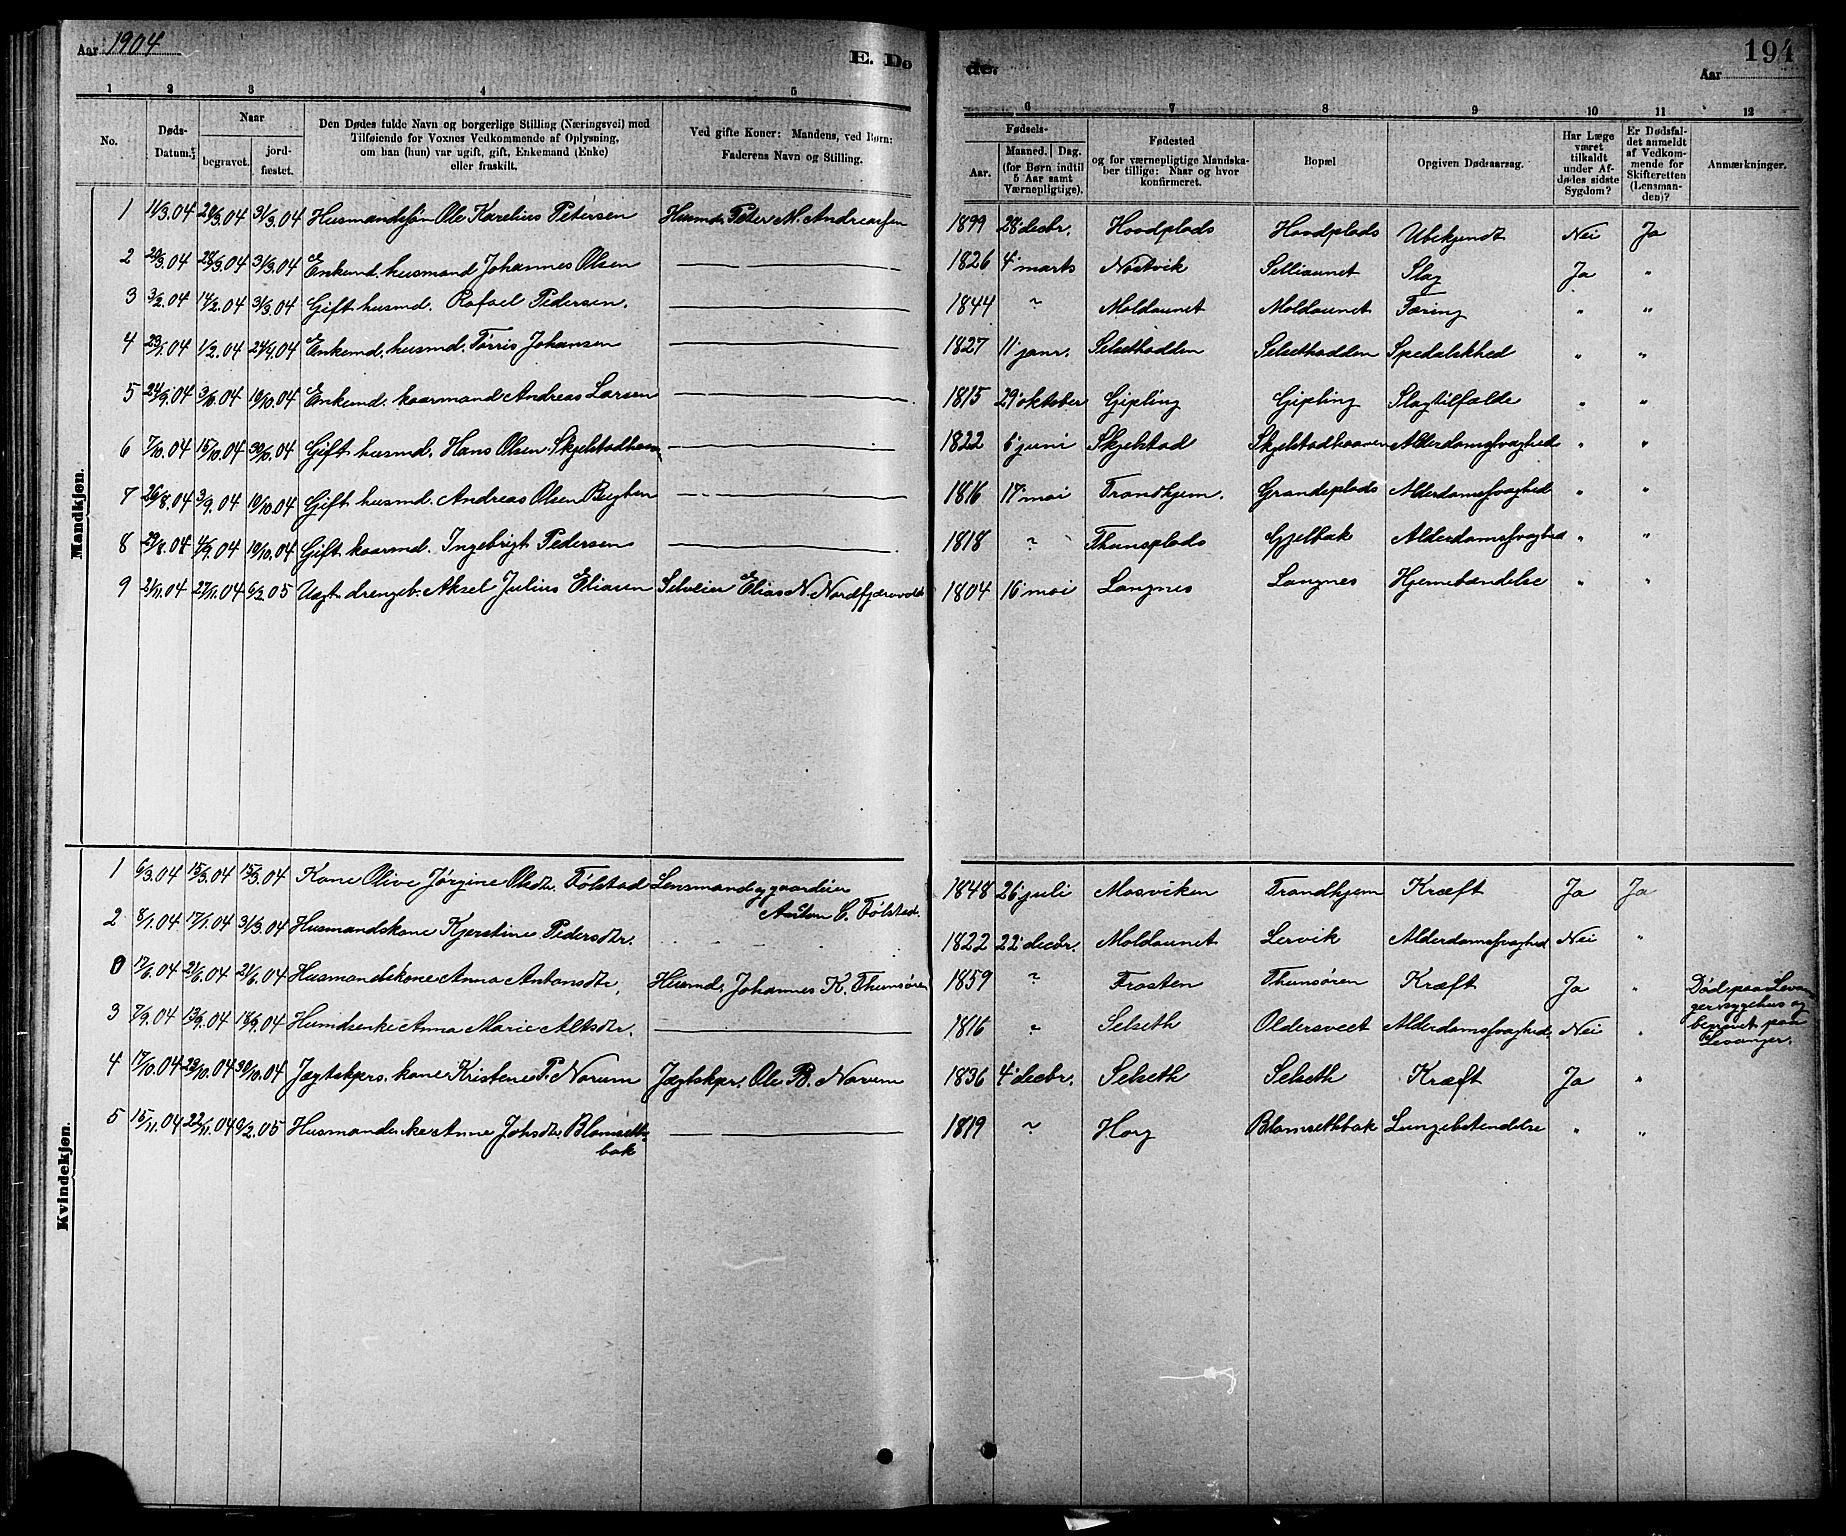 Aar 1904
E. Dø
de.
194
Aar
1 2 3 4 5 6 7 8 9 10 11 12
No.
Døds-Datum.
Naar
begravet.
jord-fæstet.
Den Dødes fulde Navn og borgerlige Stilling (Næringsvei) med
Tilføiende for Voxnes Vedkommende af Oplysning,
om han (hun) var ugift, gift, Enkemand (Enke)
eller fraskilt.
Ved gifte Koner: Mandens, ved Børn:
Faderens Navn og Stilling.
Fødsels-
Aar.
Maaned. Dag.
(for Børn indtil
5 Aar samt
Værnepligtige).
Fødested
og for værnepligtige Mandska-
ber tillige: Naar og hvor
konfirmeret.
Bopæl
Opgiven Dødsaarsag.
Har Læge
været
tilkaldt
under Af-
dødes sidste
Sygdom?
Er Dødsfal-
det anmeldt
af Vedkom-
mende for
Skifteretten
(Lensman-
den)?
Anmærkninger.
Mandkjøn.
1 11/3.04 31/3.04 Husmandssøn Ole Karelius Petersen Husmd. Peter M. Andreassen 1899 28 decbr. Hovdplads Hovdplads Ubekjendt Nei Ja
2 28/3.04 31/3.04 Enkemd. husmand Johannes Olsen 1826 4 marts Nostvik Selliaunet Slag Ja "
3 3/2.04 14/2.04 31/3.04 Gift husmd. Rafael Pedersen. 1844 ? Moldaunet Moldaunet Tæring " "
4 23/1.04 1/2.04 24/4.04 Enkemd. husmd. Tørris Johansen 1827 11 janr. Selsethodden Selsethodden Spedalskhed " "
5 24/9.04 3/10.04 19/10.04 Enkemd. kaarmand Andreas Larsen 1815 29 oktober Gipling Gipling Slagtilfælde " "
6 7/10.04 15/10.04 30/10.04 Gift husmd. Hans Olsen Skjelstadhaan 1822 6 juni Skjelstad Skjelstadhaaven Alderdomssvaghed " "
7 26/8.04 3/9.04 19/10.04 Gift husmd. Andreas Olsen Bugten 1816 17 mai Trondhjem. Grandeplads Alderdomssvaghed " "
8 29/8.04 4/9.04 19/10.04 Gift kaarmd. Ingebrigt Pedersen 1818 ? Thunsplads Gjelbak Alderdomssvaghed " "
9 21/11.04 27/11.04 6/2.05 Ugt. drengeb. Aksel Julius Eliasen Selveier Elias N. 1804 16 mai Langnes Langnes Hjernebændelse " "
Kvindekjøn.
1 6/3.04 15/3.04 15/3.04 Kone Olive Jørgine Olsdtr. Følstad Lensmand og gaardeier 1848 26 juli Mosviken Trondhjem Kræft Ja Ja
Anton C. Følstad.
2 8/1.04 17/1.04 31/3.04 Husmandskone Kjerstine Pedersdtr. 1822 22 decbr. Moldaunet Lervik Alderdomssvaghed Nei "
0 17/6.04 21/6.04 21/6.04 Husmandskone Anna Antonsdtr. Husmd. Johannes K. Thunsøren 1859 ? Frosten Thunsøren Kræft Ja " Døde paa Levan-
ger sygehus og
begravet paa
Levanger.
3 7/9.04 13/9.04 18/9.04 Husmdsenke Anna Marie Altsdtr. 1816 " Selseth Oldersveet Alderdomssvaghed. Nei "
4 17/10.04 23/10.04 30/10.04 Jægtskprs. kone Kristene P. Norum Jægtskpr. Ole B. Norum 1836 4 decbr. Selseth Selseth Kræft Ja "
5 15/11.04 22/11.04 6/2.05 Husmandsenke Anne Johsdtr. Blomseth- 1819 ? Horg Blomsethbak Lungebetendelse " "
bak